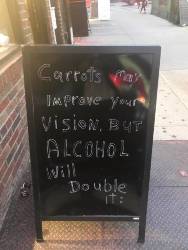 Carrots may
Improve your
VISION, BUT
ALCOHOL
Will
Double
It: